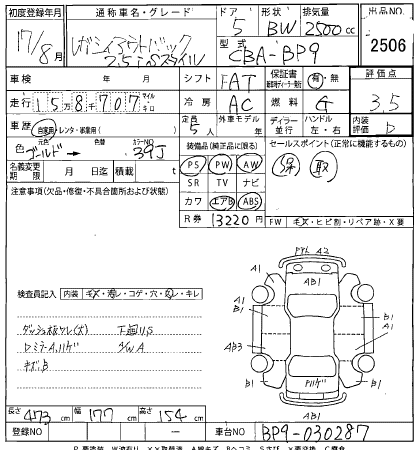 初度登録年月 通称車名・グレード ドア 形状 排気量 出品NO
17/8月 レガシィアウトバック 5 BW 2500cc 2506
2.5i Sスタイル 型式 CBA-BP9
車検 年 月 シフト FAT 保証書 有・無 評価点
走行 158千707 マイル キロ 冷房 AC 燃料 G 3.5
車歴 自家用・レンタ・事業用( ) 定員 5人 外車モデル ディーラー 並行 ハンドル 左・右 評価 内装 D
色 元色 ゴールド 色替 カラーNO 39J 装備品(純正品に限る) セールスポイント(正常に機能するもの)
名義変更期限 月 日迄 積載 t PS PW AW 保 取
注意事項(欠品・修復・不具合箇所および状態) SR TV ナビ
カワ エアB ABS
R券 13220円 FW キズ・ヒビ割・リペア跡・X要
A2
A1 AB1 A1
検査員記入 内装 キズ・汚レ・コゲ・穴・切レ・キレ
B1 B1 B1
ダッシュ板ワレ(大) 下廻りS
RミラーA,ハゲ 4/W A AB3 A1
キズ,B
B1 A1
ハゲ
長さ 473cm 幅 177cm 高さ 154cm AB1
登録NO — 車台NO BP9-030287